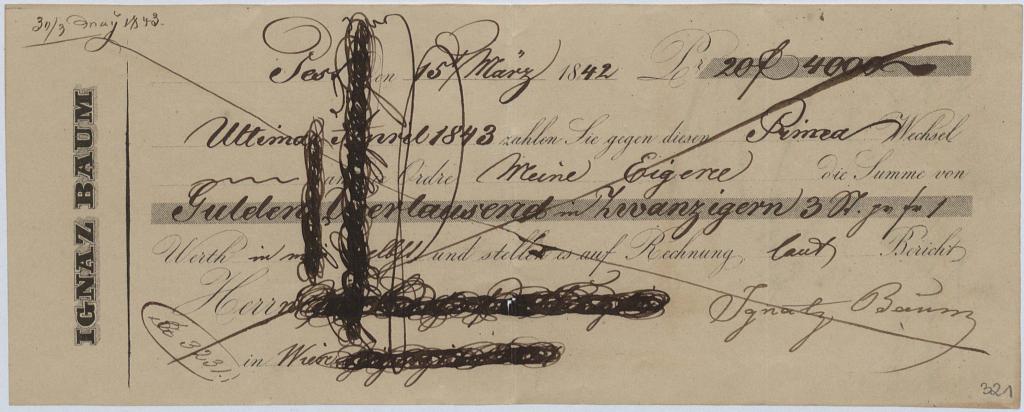 30/3 May 1843.
IGNAZ BAUM
Pest den 15t März 1842 Pr 20f 4000
Ultimo April 1843 zahlen Sie gegen diesen Prima Wechsel
an die Ordre Meine Eigene die Summe von
Gulden Viertausend in Zwanzigern 3 St. pr fr 1
Werth in mir selbst und stellen es auf Rechnung laut Bericht
Herrn
Ignatz Baum
in Wien
321